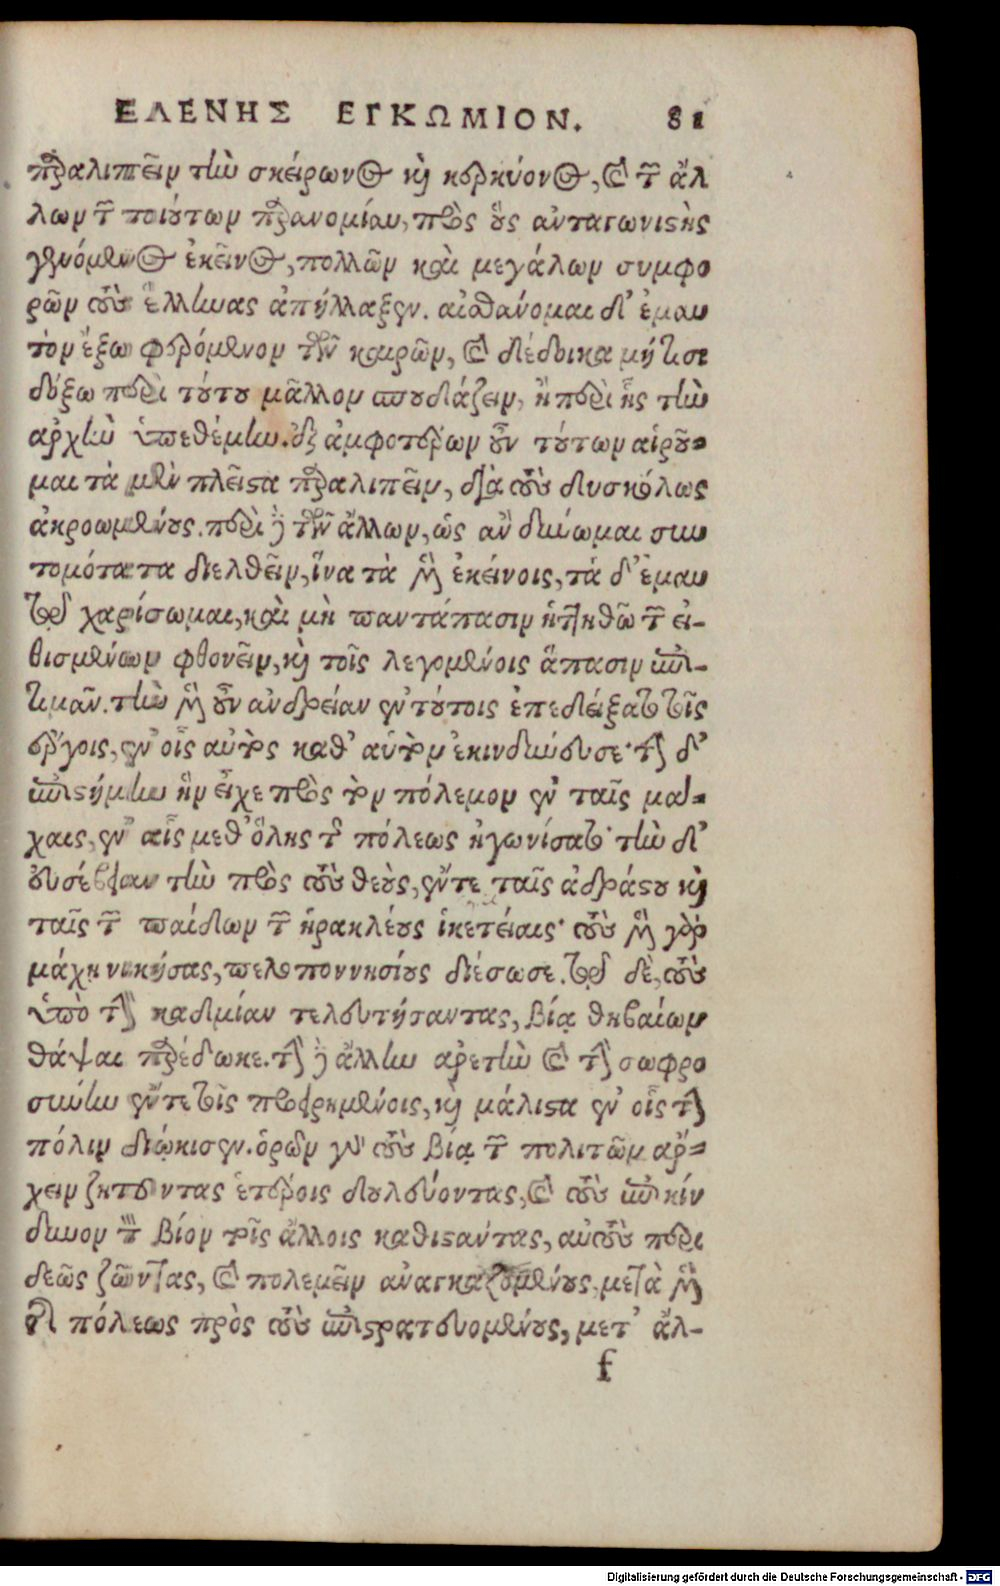 ΕΛΕΝΗΣ ΕΓΚΩΜΙΟΝ. 81
παραλιπεῖν τὴν σκείρωνος καὶ κερκύονος, καὶ τῶν ἄλ
λων τῶν τοιούτων παρανομίαν, πρὸς οὓς ἀνταγωνιστὴς
γενόμενος ἐκεῖνος, πολλῶν καὶ μεγάλων συμφο
ρῶν τοὺς ἕλληνας ἀπήλλαξεν. αἰσθάνομαι δ' ἐμαυ
τὸν ἔξω φερόμενον τῶν καιρῶν, καὶ δέδοικα μή τισι
δόξω περὶ τούτου μᾶλλον σπουδάζειν, ἢ περὶ ἧς τὴν
ἀρχὴν ὑπεθέμην. ἐξ ἀμφοτέρων οὖν τούτων αἱροῦ-
μαι τὰ μὲν πλεῖστα παραλιπεῖν, διὰ τοὺς δυσκόλως
ἀκροωμένους. περὶ δὲ τῶν ἄλλων, ὡς ἂν δύνωμαι συν
τομώτατα διελθεῖν, ἵνα τὰ μὲν ἐκείνοις, τὰ δ' ἐμαυ
τῷ χαρίσωμαι, καὶ μὴ παντάπασιν ἡττηθῶ τῶν εἰ-
θισμένων φθονεῖν, καὶ τοῖς λεγομένοις ἅπασιν ἐπι-
τιμᾶν. τὴν μὲν οὖν ἀνδρείαν ἐν τούτοις ἐπεδείξατο τοῖς
ἔργοις, ἐν οἷς αὐτὸς καθ' αὑτὸν ἐκινδύνευσε· τὴν δ'
ἐπιστήμην ἣν εἶχε πρὸς τὸν πόλεμον ἐν ταῖς μά-
χαις, ἐν αἷς μεθ' ὅλης τῆς πόλεως ἠγωνίσατο· τὴν δ'
εὐσέβειαν τὴν πρὸς τοὺς θεοὺς, ἔν τε ταῖς ἀδράστου καὶ
ταῖς τῶν παίδων τῶν ἡρακλέους ἱκετείαις· τοὺς μὲν γὰρ
μάχῃ νικήσας, πελοποννησίους διέσωσε. τῷ δὲ, τοὺς
ὑπὸ τὴν καδμίαν τελευτήσαντας, βίᾳ θηβαίων
θάψαι παρέδωκε. τὴν δὲ ἄλλην ἀρετὴν καὶ τὴν σωφρο
σύνην ἔν τε τοῖς προειρημένοις, καὶ μάλιστα ἐν οἷς τὴν
πόλιν διῴκισεν. ὁρῶν γὰρ τοὺς βίᾳ τῶν πολιτῶν ἄρ-
χειν ζητοῦντας ἑτέροις δουλεύοντας, καὶ τοὺς ἐπικίν
δυνον τὸν βίον τοῖς ἄλλοις καθιστάντας, αὐτοὺς περι
δεῶς ζῶντας, καὶ πολεμεῖν ἀναγκαζομένους, μετὰ μὲν
τῆς πόλεως πρὸς τοὺς ἐπιστρατευομένους, μετ' ἄλ-
f
Digitalisierung gefördert durch die Deutsche Forschungsgemeinschaft - DFG